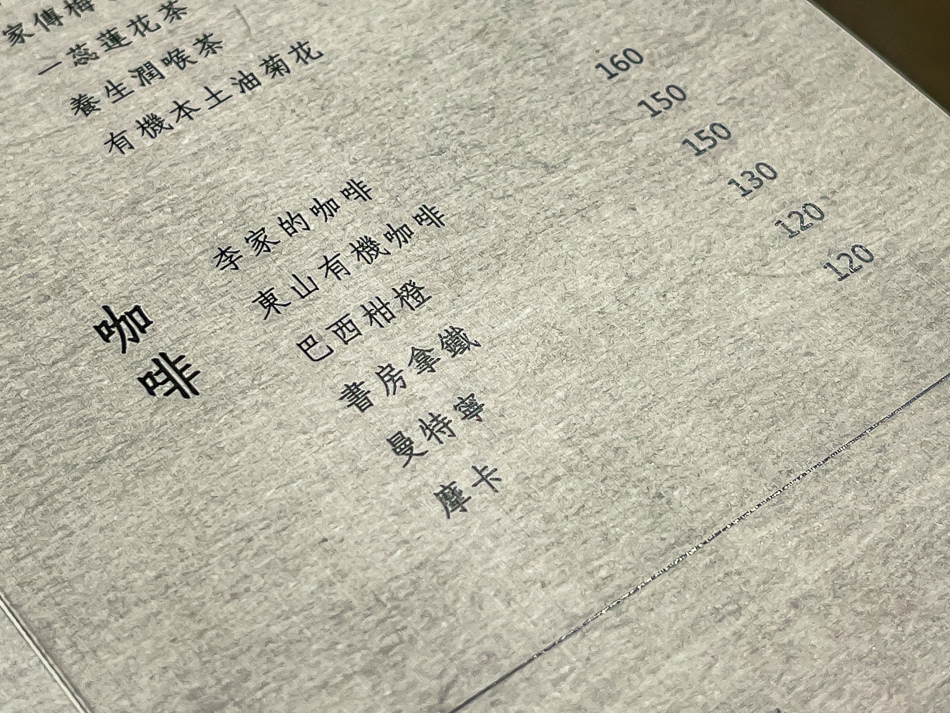 家傳梅
一蕊蓮花茶
養生潤喉茶
有機本土油菊花
咖啡
李家的咖啡 160
東山有機咖啡 150
巴西柑橙 150
書房拿鐵 130
曼特寧 120
摩卡 120